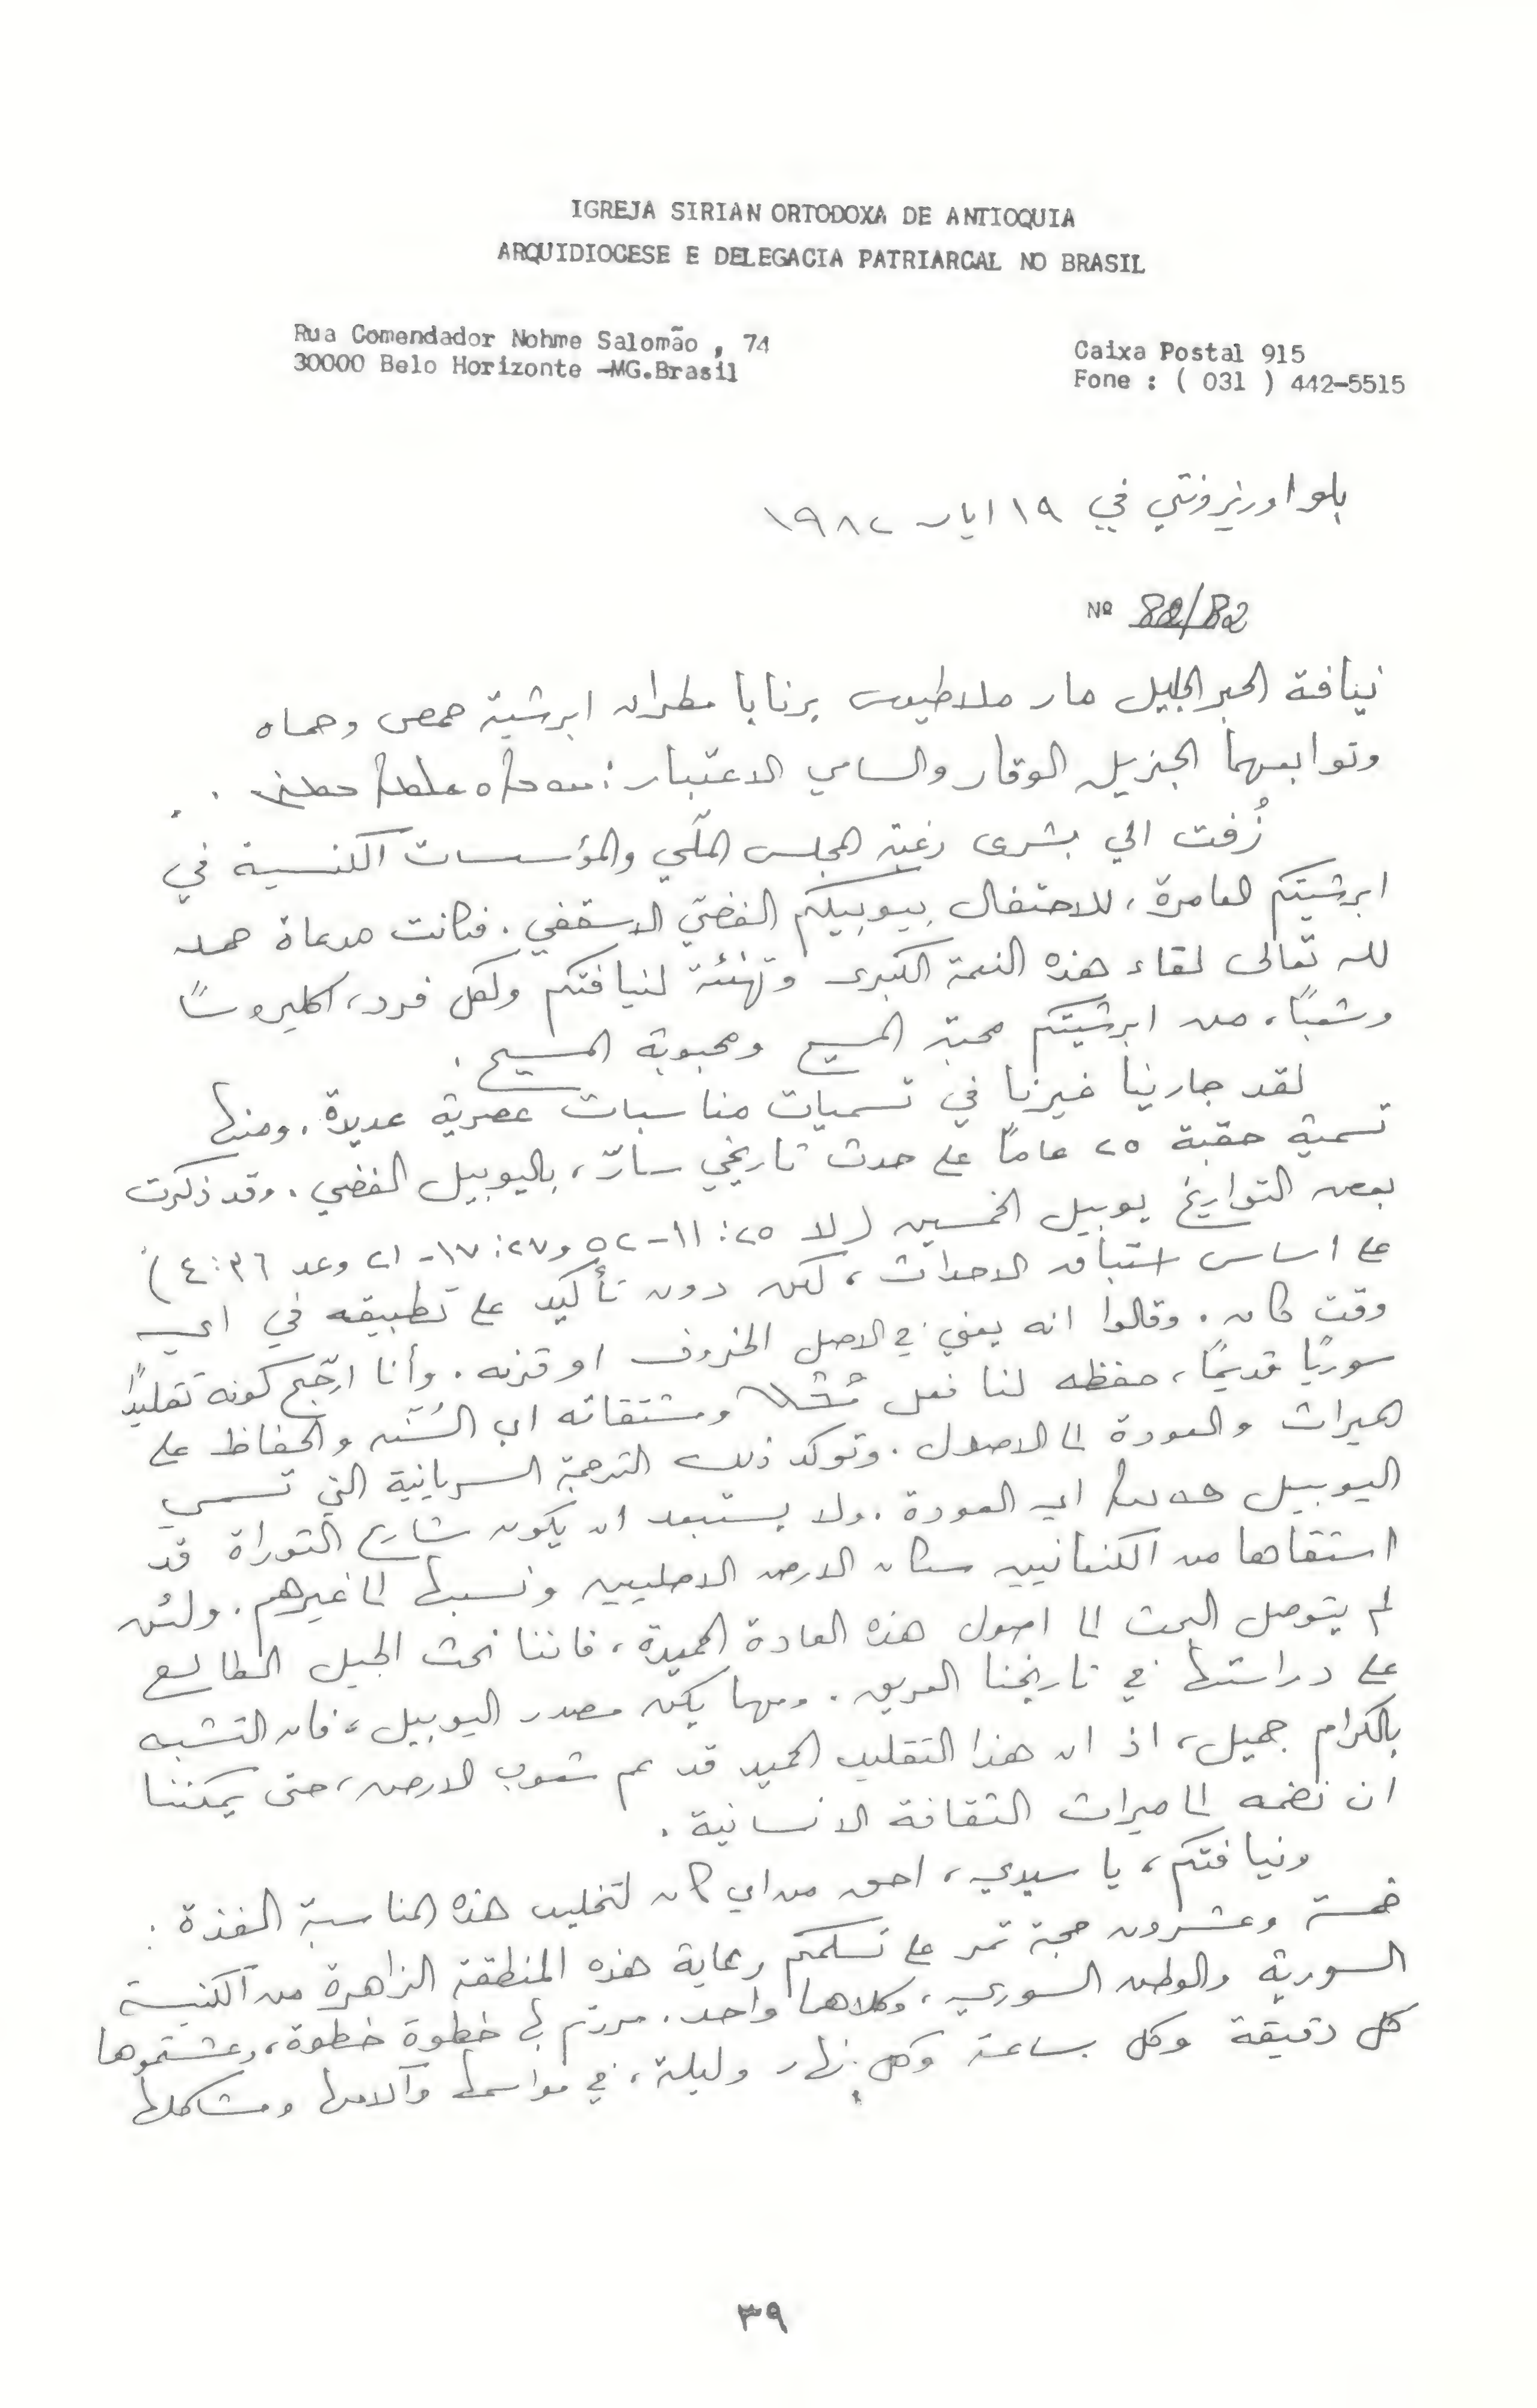 IGREJA SIRIAN ORTODOXA DE ANTIOQUIA
ARQUIDIOCESE E DELEGACIA PATRIARCAL NO BRASIL
Rua Comendador Nohme Salomão , 74
30000 Belo Horizonte -MG.Brasil
Caixa Postal 915
Fone : ( 031 ) 442-5515
بلو اوريزونتي في ١٩ ايار ١٩٨٢
Nº 82/82
نيافة الحبر الجليل مار ملاطيوس برنابا مطران ابرشية حمص وحماه
وتوابعهما الجزيل الوقار والسامي الاعتبار :
زُفت الي بشرى رغبة المجلس الملّي والمؤسسات الكنسية في
ابرشيتكم العامرة ، للاحتفال بيوبيلكم الفضيّ الاسقفي . فكانت مدعاة حمد
لله تعالى لقاء هذه النعمة الكبرى وتهنئة لنيافتكم ولكل فرد ، اكليروسًا
وشعبًا ، من ابرشيتكم محبة المسيح ومحبوبة المسيح .
لقد جارينا غيرنا في تسميات مناسبات عصرية عديدة . ومنها
تسمية حقبة ٢٥ عامًا على حدث تاريخي سارّ ، باليوبيل الفضي . وقد ذكرت
بعض التواريخ يوبيل الخمسين ( لا ٢٥ : ١١-٥٢ و٢٧ : ١٧-٢١ وعد ٣٦ : ٤ )
على اساس استباق الاحداث ، لكن دون تأكيد على تطبيقه في اي
وقت كان . وقالوا انه يعني في الاصل الخروف او قرنه . وأنا ارجّح كونه تقليدًا
سوريًا قديمًا ، حفظه لنا فعل ومشتقاته اي السُنّه والحفاظ على
الميراث والعودة الى الاصول . وتوكد ذلك الترجمة السريانية التي تسمي
اليوبيل اي العودة . ولا يستبعد ان يكون شارع التوراة قد
استقاها من الكنعانيين سكان الارض الاصليين ونسبها الى غيرهم . ولئن
لم يتوصل البحث الى اصول هذه العادة الحميدة ، فاننا نحث الجيل الطالع
على دراستها في تاريخنا العريق . ومهما يكن مصدر اليوبيل ، فان التشبه
بالكرام جميل ، اذ ان هذا التقليد الحميد قد عم شعوب الارض ، حتى يمكننا
ان نضمه الى ميراث الثقافة الانسانية .
ونيافتكم ، يا سيدي ، احق من اي كان لتخليد هذه المناسبة الفذة :
خمسة وعشرون حجة تمر على تسلمكم رعاية هذه المنطقة الزاهرة من الكنيسة
السورية والوطن السوري ، وكلاهما واحد . مررتم بها خطوة خطوة ، وعشتموها
كل دقيقة وكل ساعة وكل نهار وليلة ، في مواسمها وآلامها ومشاكلها
٣٩